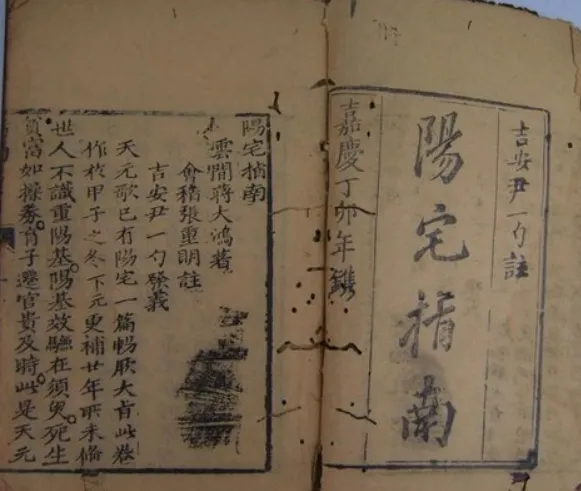 吉安尹一勺註
陽宅指南
嘉慶丁卯年鐫
陽宅指南
雲間蔣大鴻著
會稽張重明註
吉安尹一勺發義
天元歌已有陽宅一篇暢厥大旨此卷
作於甲子之冬下元更補廿年所未備
世人不識重陽基陽基效驗在須臾死生
貧富如操券育子遷官貴及時此是天元